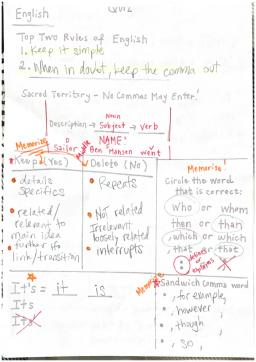 English
Quiz
Top Two Rules of English
1. Keep it simple
2. When in doubt, keep the comma out
Sacred Territory - No Commas May Enter!
Noun
Description → Subject → verb
NAME:
Memorize
Sailor Ben Hansen went
Keep (Yes)
Delete (No)
Memorize!
• details
Specifics
• related/
relevant to
main idea
• further
link/transition
• Repeats
• Not related
Irrelevant
loosely related
• interrupts
Circle the word
that is correct:
who or whom
then or than
, which or which
, that or that
It's = it is
Its
Its'
Memorize
Sandwich Comma word
• , for example,
• , however,
• , though,
• , so,